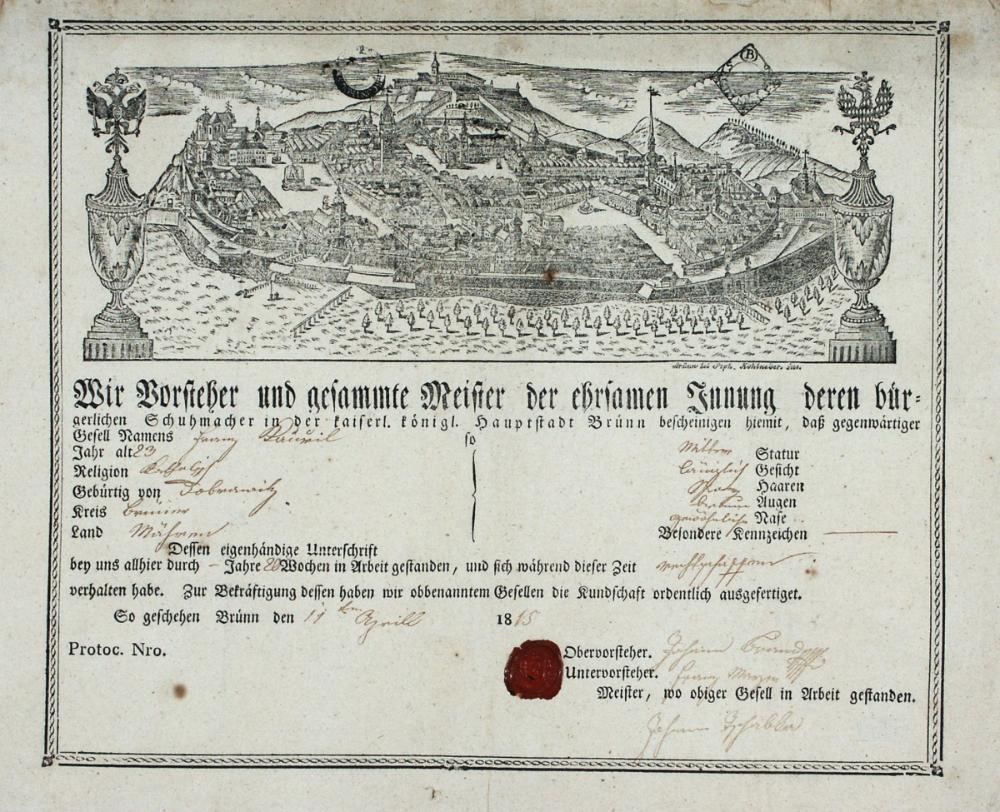 Brünn bei Jos. Rohlneder. Inv.
Wir Vorsteher und gesammte Meister der ehrsamen Innung deren bür-
gerlichen Schuhmacher in der kaiserl. königl. Hauptstadt Brünn bescheinigen hiemit, daß gegenwärtiger
Gesell Namens Franz so Mittern Statur
Jahr alt 23 länglich Gesicht
Religion Katholisch Haaren
Gebürtig von Dobrawitz Augen
Kreis Brünner gewöhnliche Nase
Land Mähren Besondere Kennzeichen
Dessen eigenhändige Unterschrift
bey uns allhier durch – Jahre 20 Wochen in Arbeit gestanden, und sich während dieser Zeit rechtschaffen
verhalten habe. Zur Bekräftigung dessen haben wir obbenanntem Gesellen die Kundschaft ordentlich ausgefertiget.
So geschehen Brünn den 11ten Aprill 1815
Protoc. Nro. Obervorsteher. Johann
Untervorsteher. Franz
Meister, wo obiger Gesell in Arbeit gestanden.
Johann